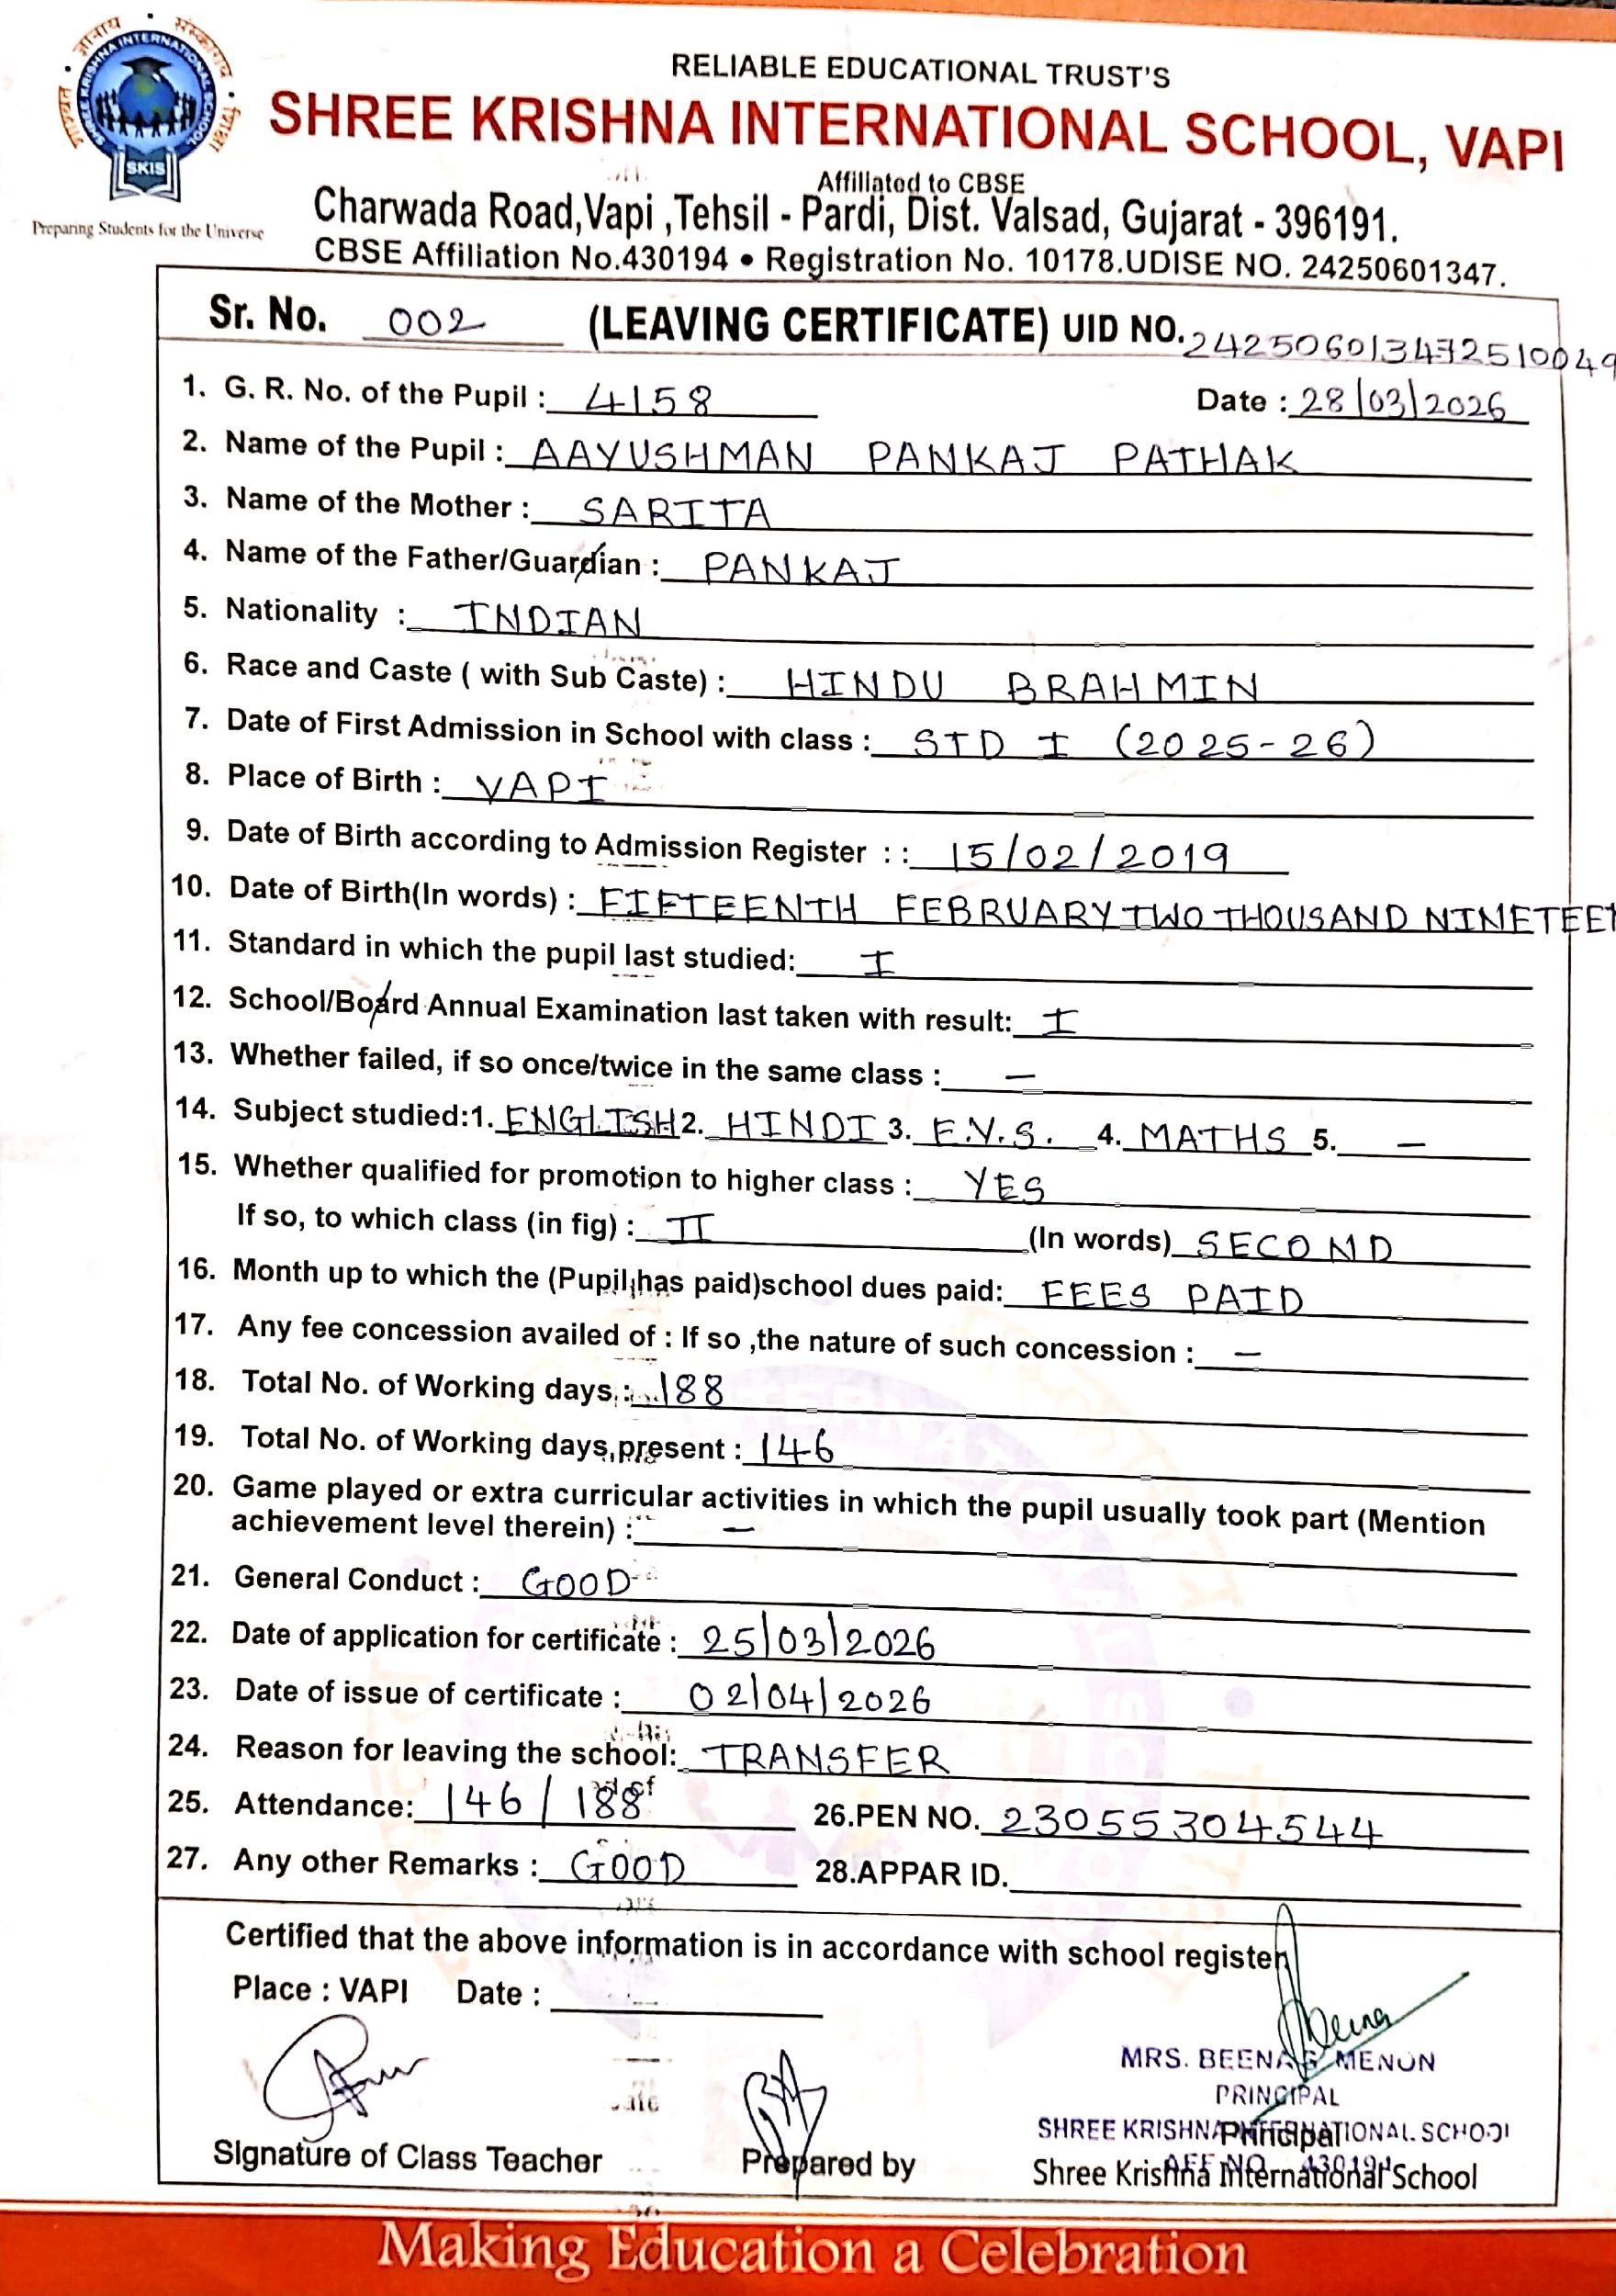 RELIABLE EDUCATIONAL TRUST'S
SHREE KRISHNA INTERNATIONAL SCHOOL, VAPI
SHREE KRISHNA INTERNATIONAL SCHOOL
SKIS
Preparing Students for the Universe
Affiliated to CBSE
Charwada Road,Vapi ,Tehsil - Pardi, Dist. Valsad, Gujarat - 396191.
CBSE Affiliation No.430194 • Registration No. 10178.UDISE NO. 24250601347.
Sr. No. 002 (LEAVING CERTIFICATE) UID NO. 242506013472510049
1. G. R. No. of the Pupil : 4158 Date : 28/03/2026
2. Name of the Pupil : AAYUSHMAN PANKAJ PATHAK
3. Name of the Mother : SARITA
4. Name of the Father/Guardian : PANKAJ
5. Nationality : INDIAN
6. Race and Caste ( with Sub Caste) : HINDU BRAHMIN
7. Date of First Admission in School with class : STD I (2025-26)
8. Place of Birth : VAPI
9. Date of Birth according to Admission Register : : 15/02/2019
10. Date of Birth(In words) : FIFTEENTH FEBRUARY TWO THOUSAND NINETEEN
11. Standard in which the pupil last studied: I
12. School/Board Annual Examination last taken with result: I
13. Whether failed, if so once/twice in the same class : —
14. Subject studied:1. ENGLISH 2. HINDI 3. E.V.S. 4. MATHS 5. —
15. Whether qualified for promotion to higher class : YES
If so, to which class (in fig) : II (In words) SECOND
16. Month up to which the (Pupil has paid)school dues paid: FEES PAID
17. Any fee concession availed of : If so ,the nature of such concession : —
18. Total No. of Working days : 188
19. Total No. of Working days present : 146
20. Game played or extra curricular activities in which the pupil usually took part (Mention
achievement level therein) : —
21. General Conduct : GOOD
22. Date of application for certificate : 25/03/2026
23. Date of issue of certificate : 02/04/2026
24. Reason for leaving the school: TRANSFER
25. Attendance: 146/188 26.PEN NO. 23055304544
27. Any other Remarks : GOOD 28.APPAR ID.
Certified that the above information is in accordance with school register
Place : VAPI Date :
MRS. BEENA MENON
PRINCIPAL
SHREE KRISHNA INTERNATIONAL SCHOOL
AFF NO 430194
Signature of Class Teacher Prepared by Principal
Shree Krishna International School
Making Education a Celebration